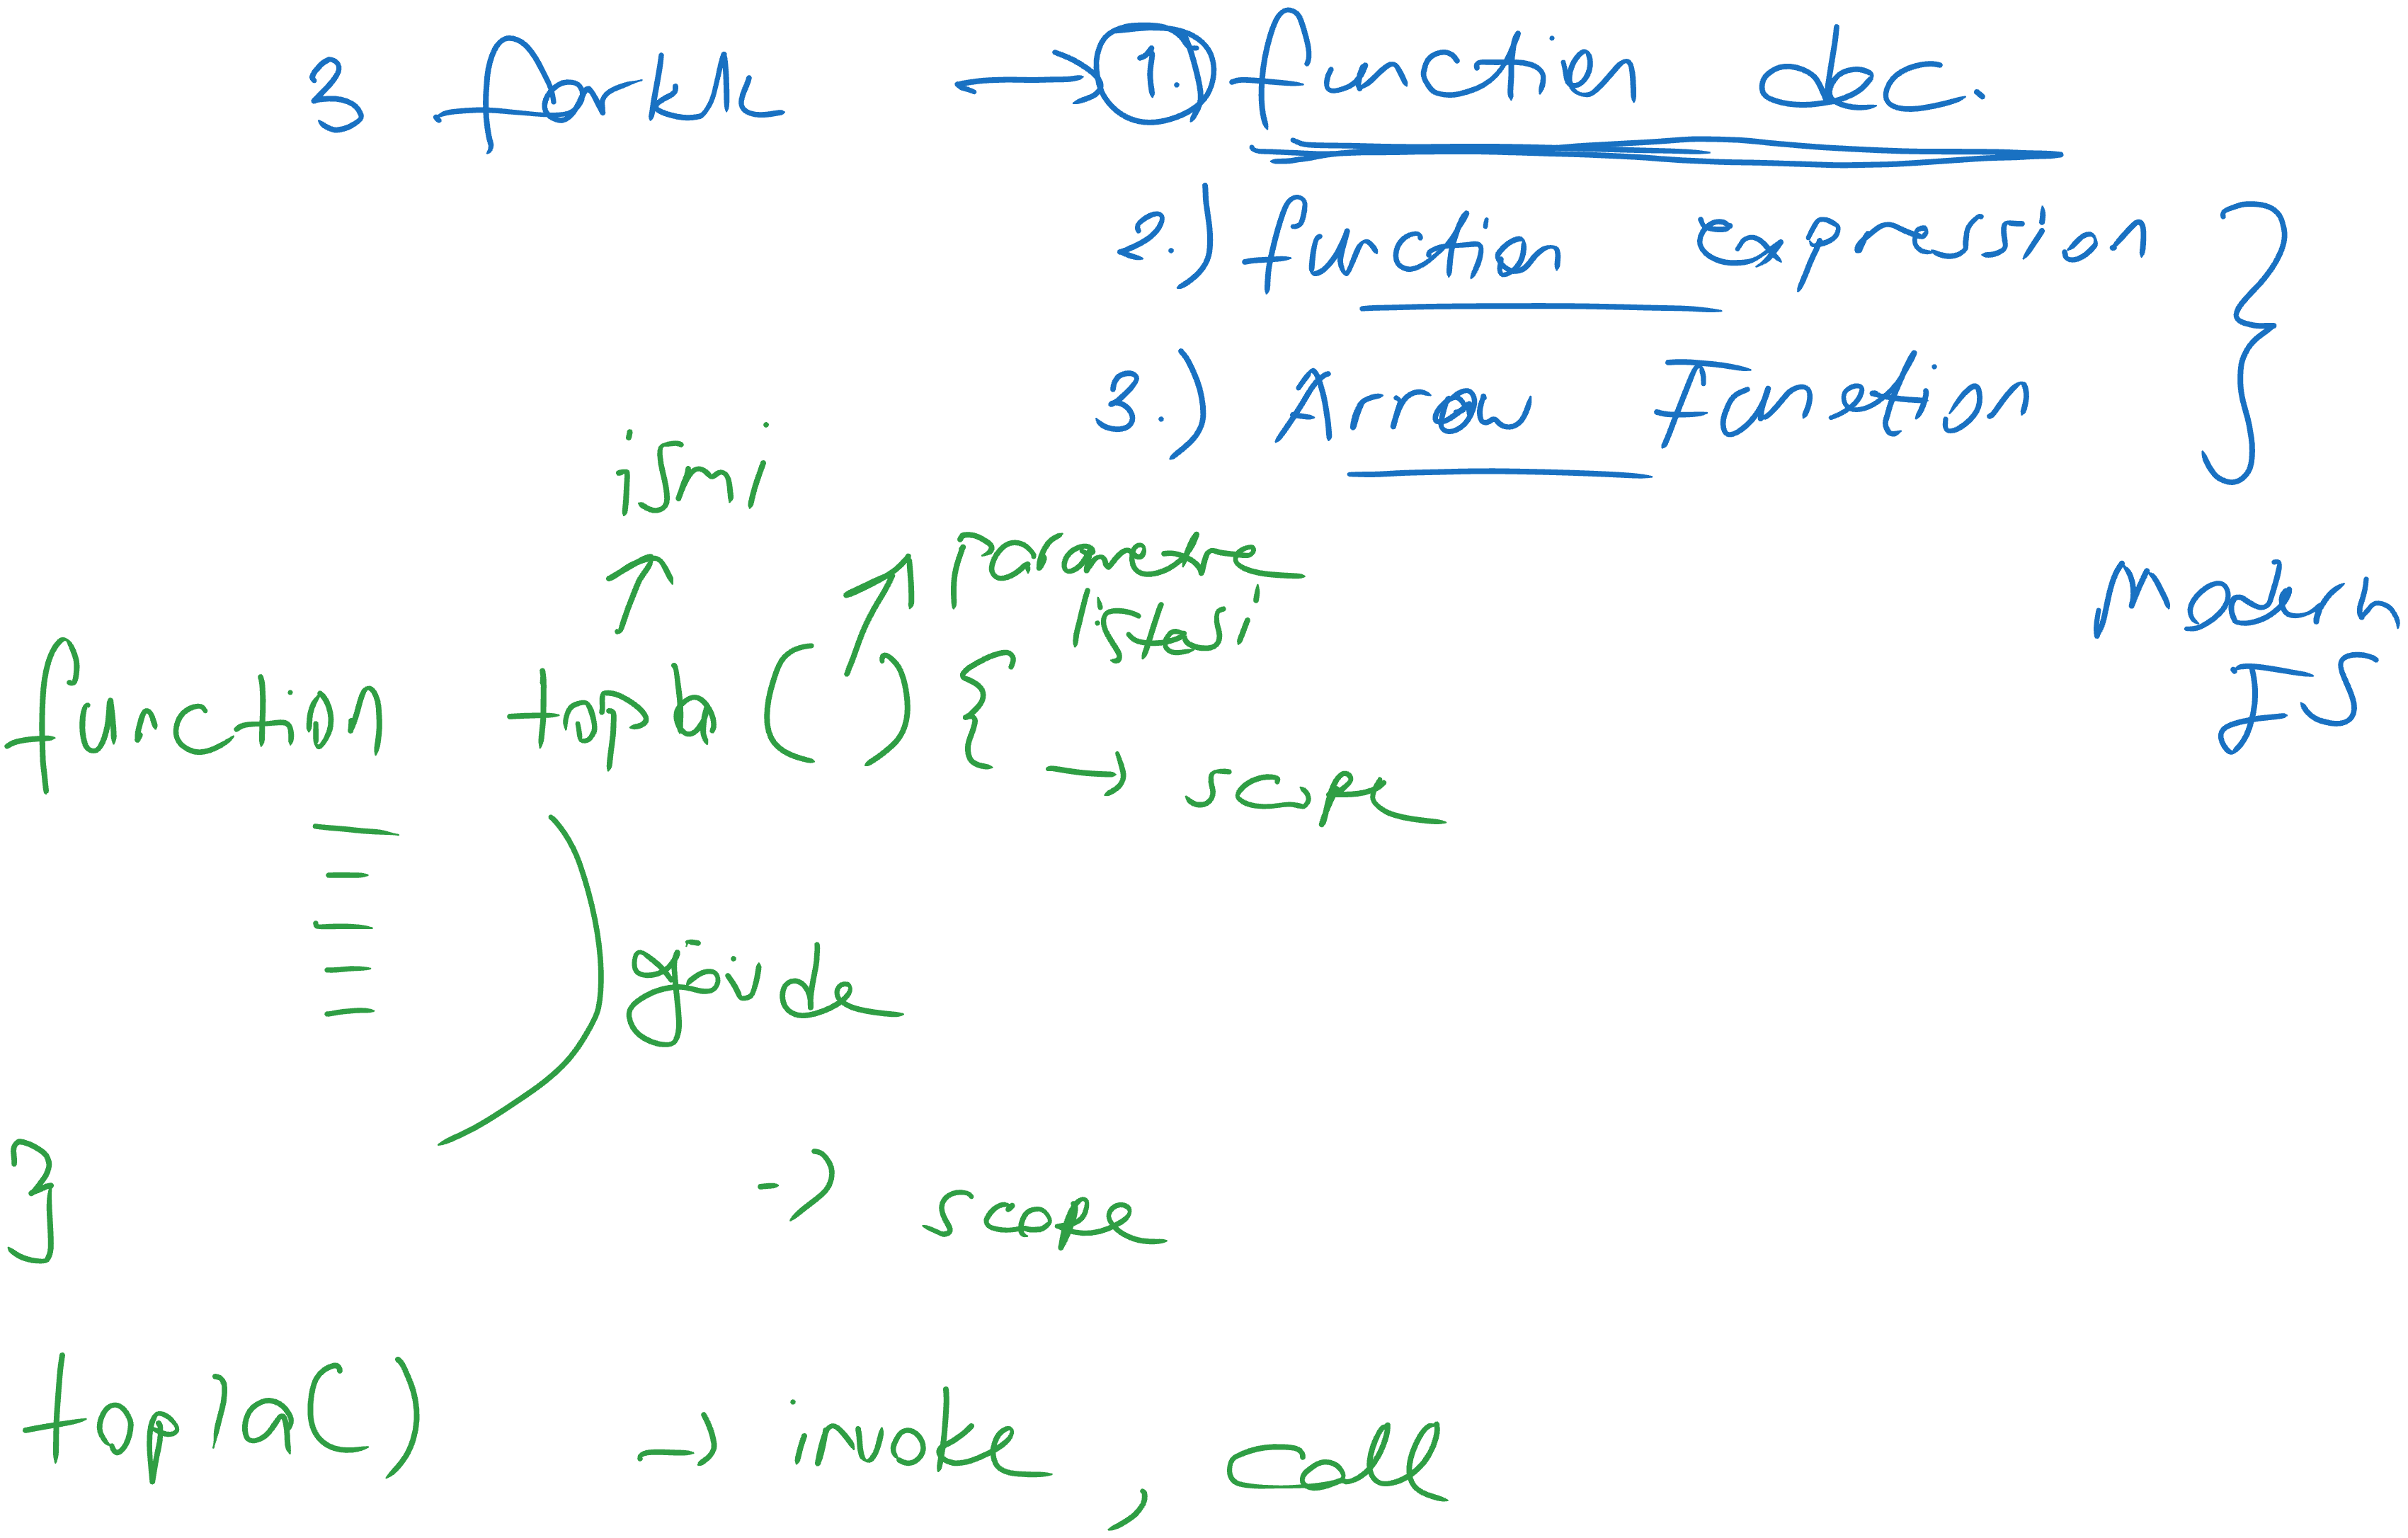 3 farklı → 1.) function dec.
2.) function expression }
3.) Arrow Function
Modern
JS
ismi
parametre
listesi
function topla() {
→ scope
gövde
}
→ scope
topla()
→ invoke, call